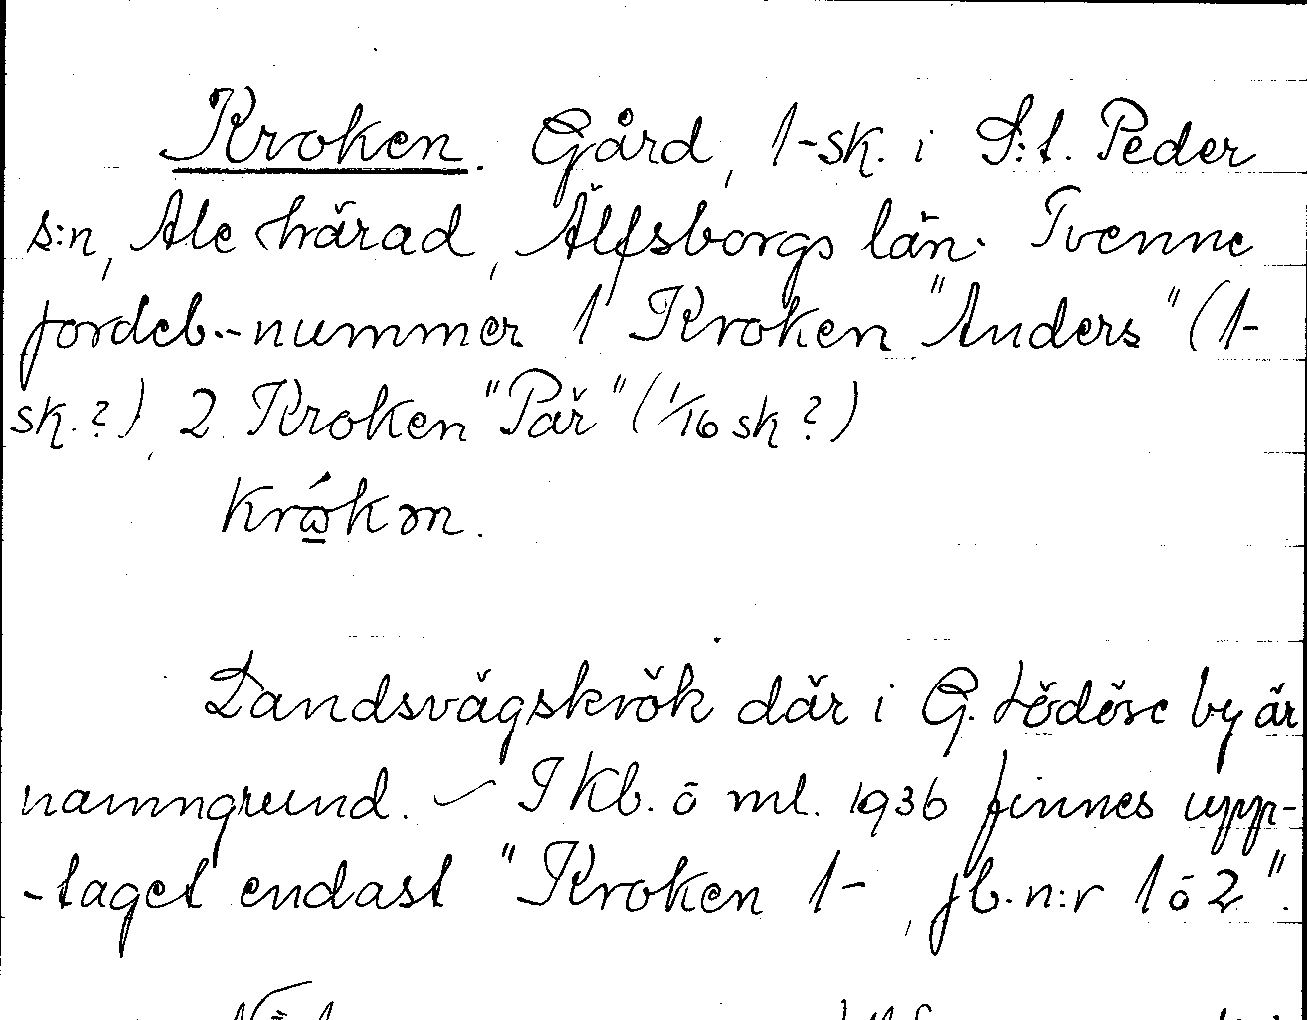 Kroken. Gård, 1-sk. i S:t. Peder
s:n, Ale härad, Älfsborgs län. Tvenne
jordeb.-nummer 1 Kroken "Anders" (1-
sk.?), 2. Kroken "Pär" (1/16 sk?)
Landsvägskrök där i G. Lödöse by är
namngrund. – I Kb. o ml. 1936 finnes upp-
-taget endast "Kroken 1-, jb. n:r 1 o 2".